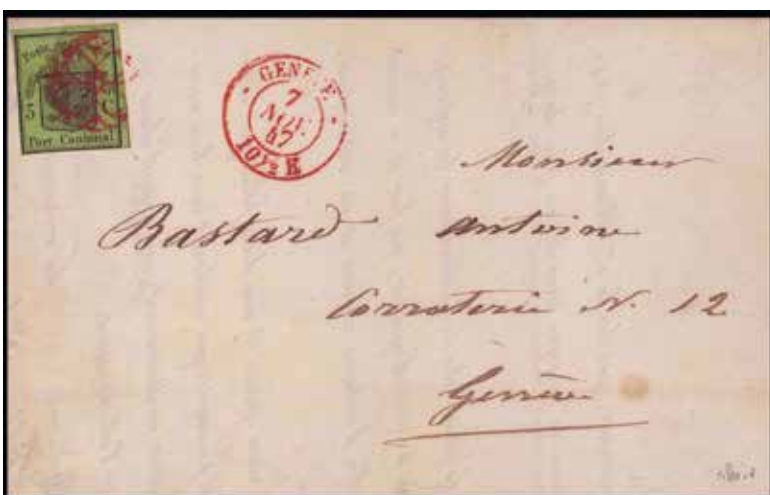 Poste de
5 C
Port Cantonal
GENÈVE
7
NOV.
47
10½ M
Monsieur
Bastard Antoine
Corraterie N. 12
Genève